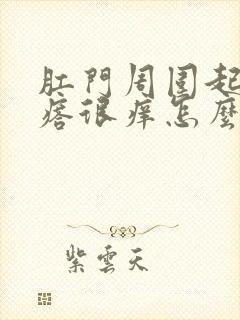 肛門周圍起
瘩很痒怎麼
紫雲天